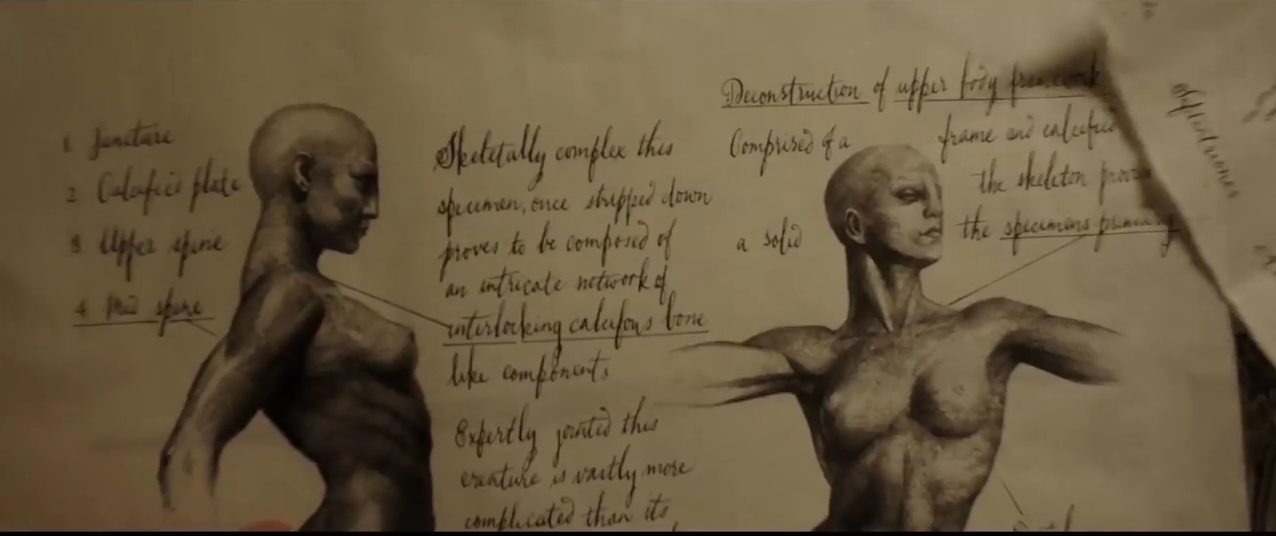 1 Juncture
2 Calcific plate
3 Upper spine
4 Mid spine
Skeletally complex this
specimen, once stripped down
proves to be composed of
an intricate network of
interlocking calcifous bone
like components
Expertly jointed this
creature is vastly more
complicated than its
Deconstruction of upper body framework
Comprised of a frame and calcified
the skeleton proves
a solid the specimens primary